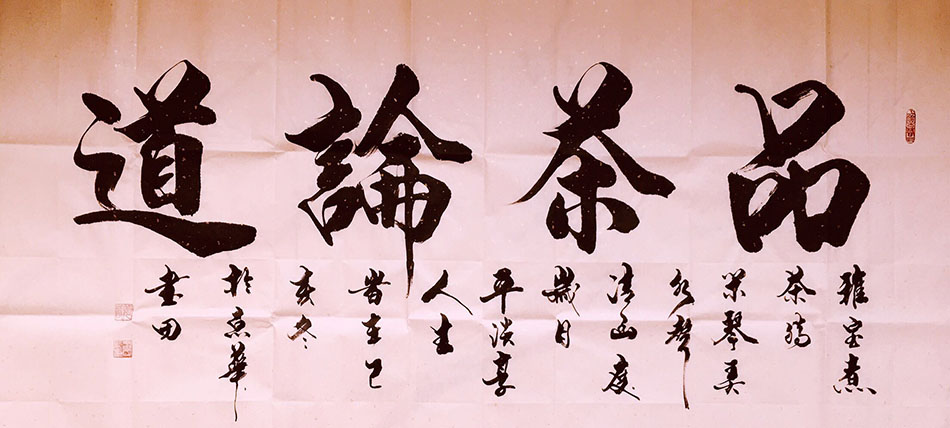 品茶論道
雅室煮
茶
琴美
聲
清幽度
歲月
平淡享
人生
在己
亥冬
於京華
書田